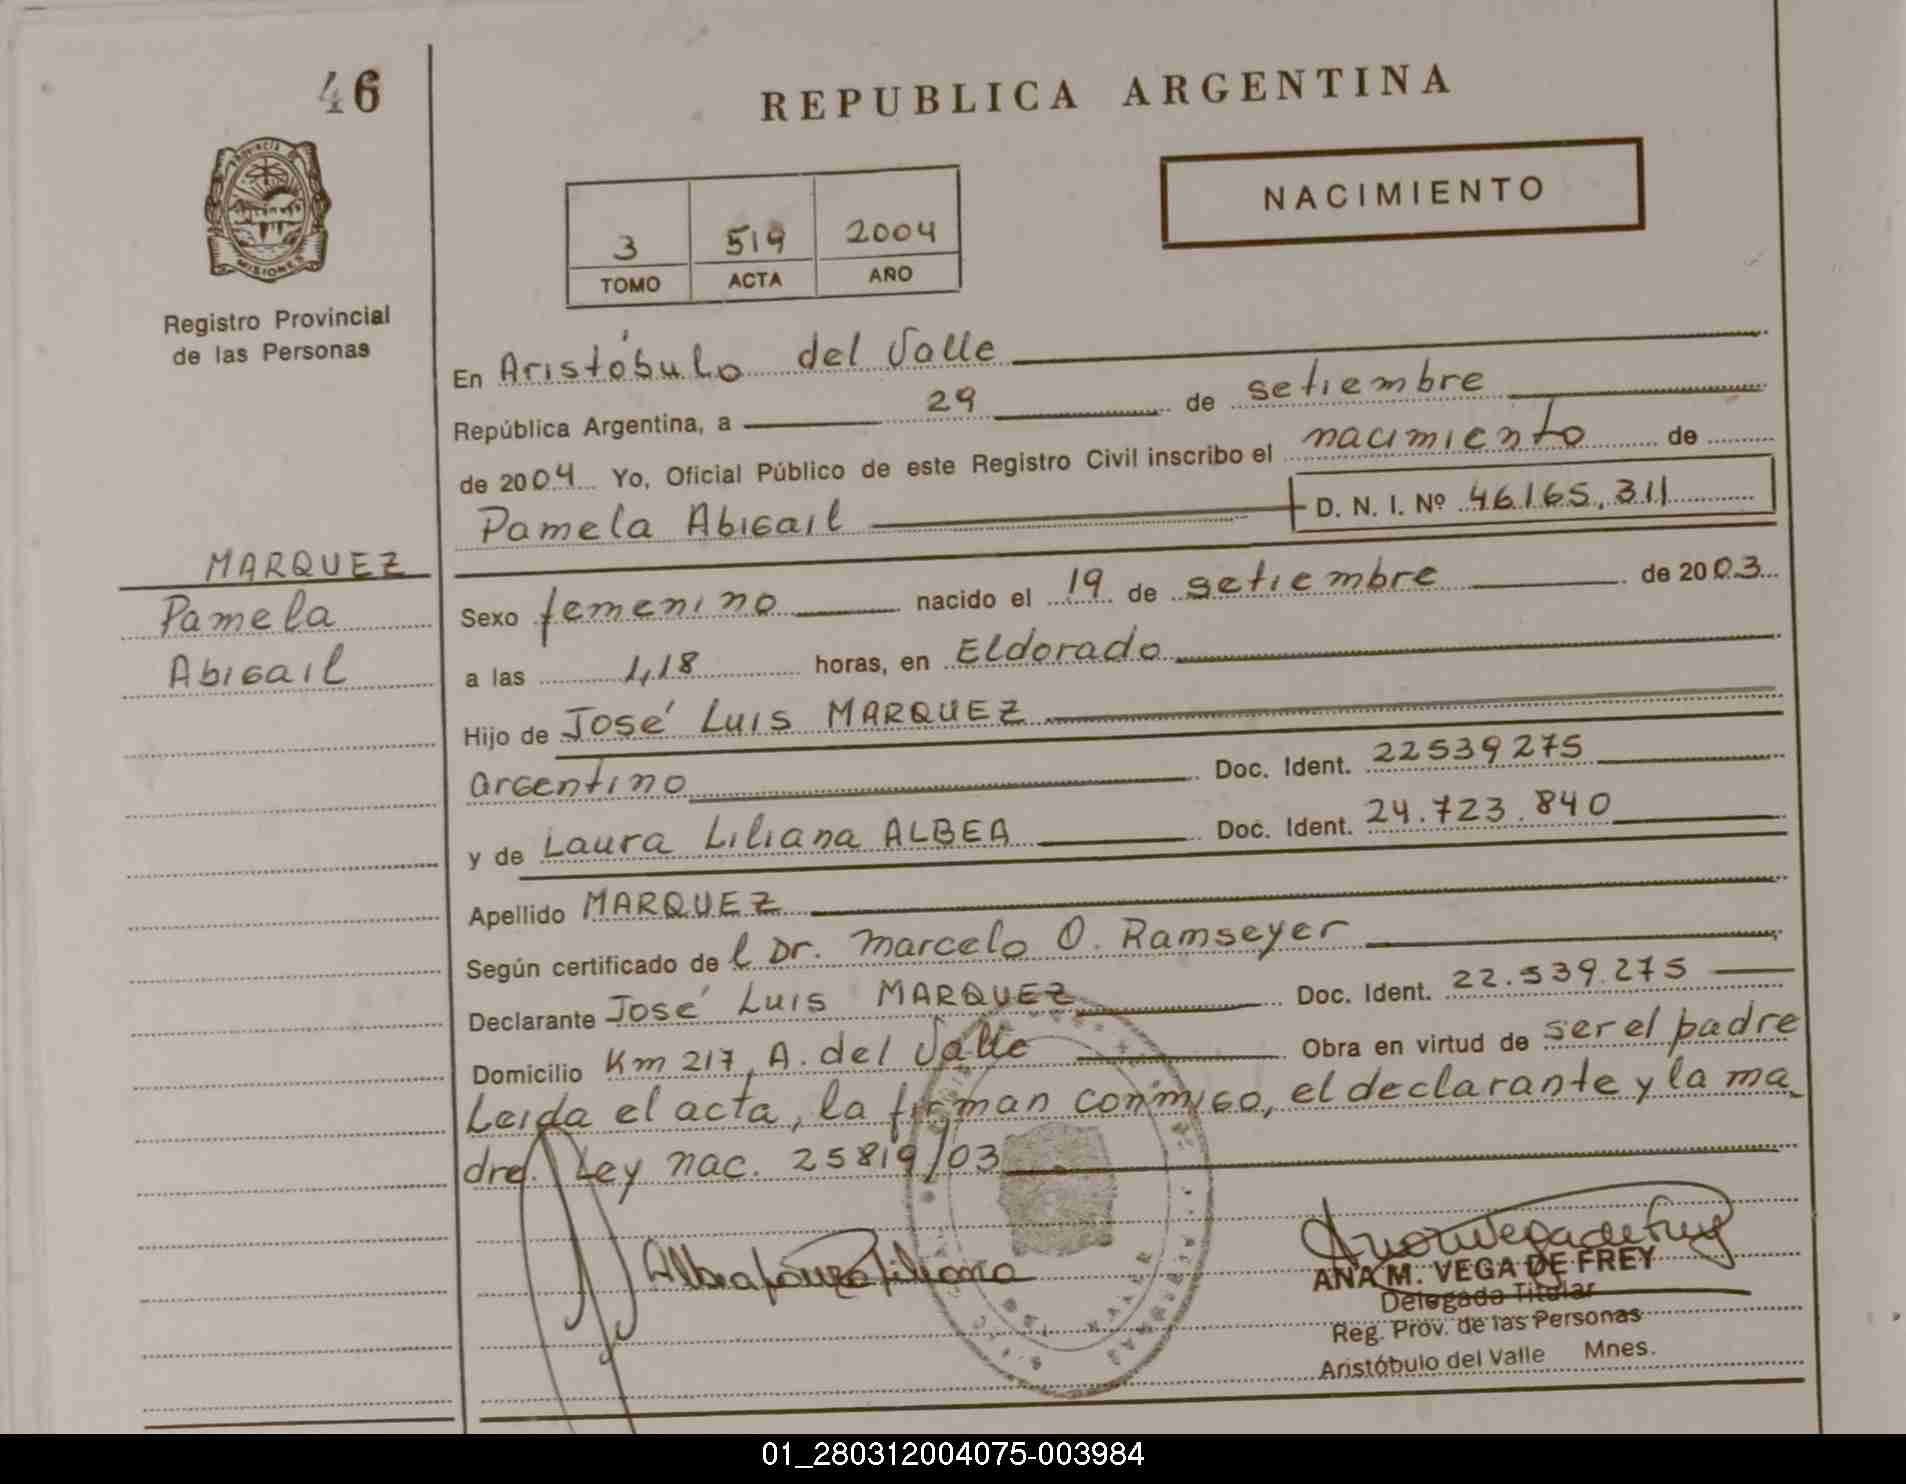 46
REPUBLICA ARGENTINA
NACIMIENTO
3 519 2004
TOMO ACTA AÑO
PROVINCIA DE
MISIONES
Registro Provincial
de las Personas
MARQUEZ
Pamela
Abigail
En Aristóbulo del Valle
República Argentina, a 29 de setiembre
de 2004 Yo, Oficial Público de este Registro Civil inscribo el nacimiento de
Pamela Abigail D. N. I. Nº 46.165.311
Sexo femenino nacido el 19 de setiembre de 2003
a las 1,18 horas, en Eldorado
Hijo de José Luis MARQUEZ
argentino Doc. Ident. 22539275
y de Laura Liliana ALBEA Doc. Ident. 24.723.840
Apellido MARQUEZ
Según certificado de l Dr. Marcelo O. Ramseyer
Declarante José Luis MARQUEZ Doc. Ident. 22.539.275
Domicilio Km 217, A. del Valle Obra en virtud de ser el padre
Leida el acta, la firman conmigo, el declarante y la ma
dre. Ley nac. 25819/03
Albea Laura Liliana
ANA M. VEGA DE FREY
Delegada Titular
Reg. Prov. de las Personas
Aristóbulo del Valle Mnes.
01_280312004075-003984